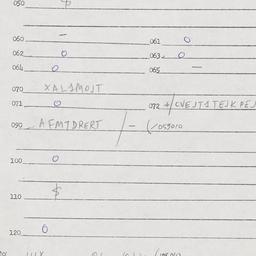 050 $
060 – 061 0
062 0 063 0
064 0 065 —
070 XALSMOJT
071 0 072 +/CVEJTSTEJKPEJ
099 AFMTDRERT / – (/059010
100 0
110 $
120 0